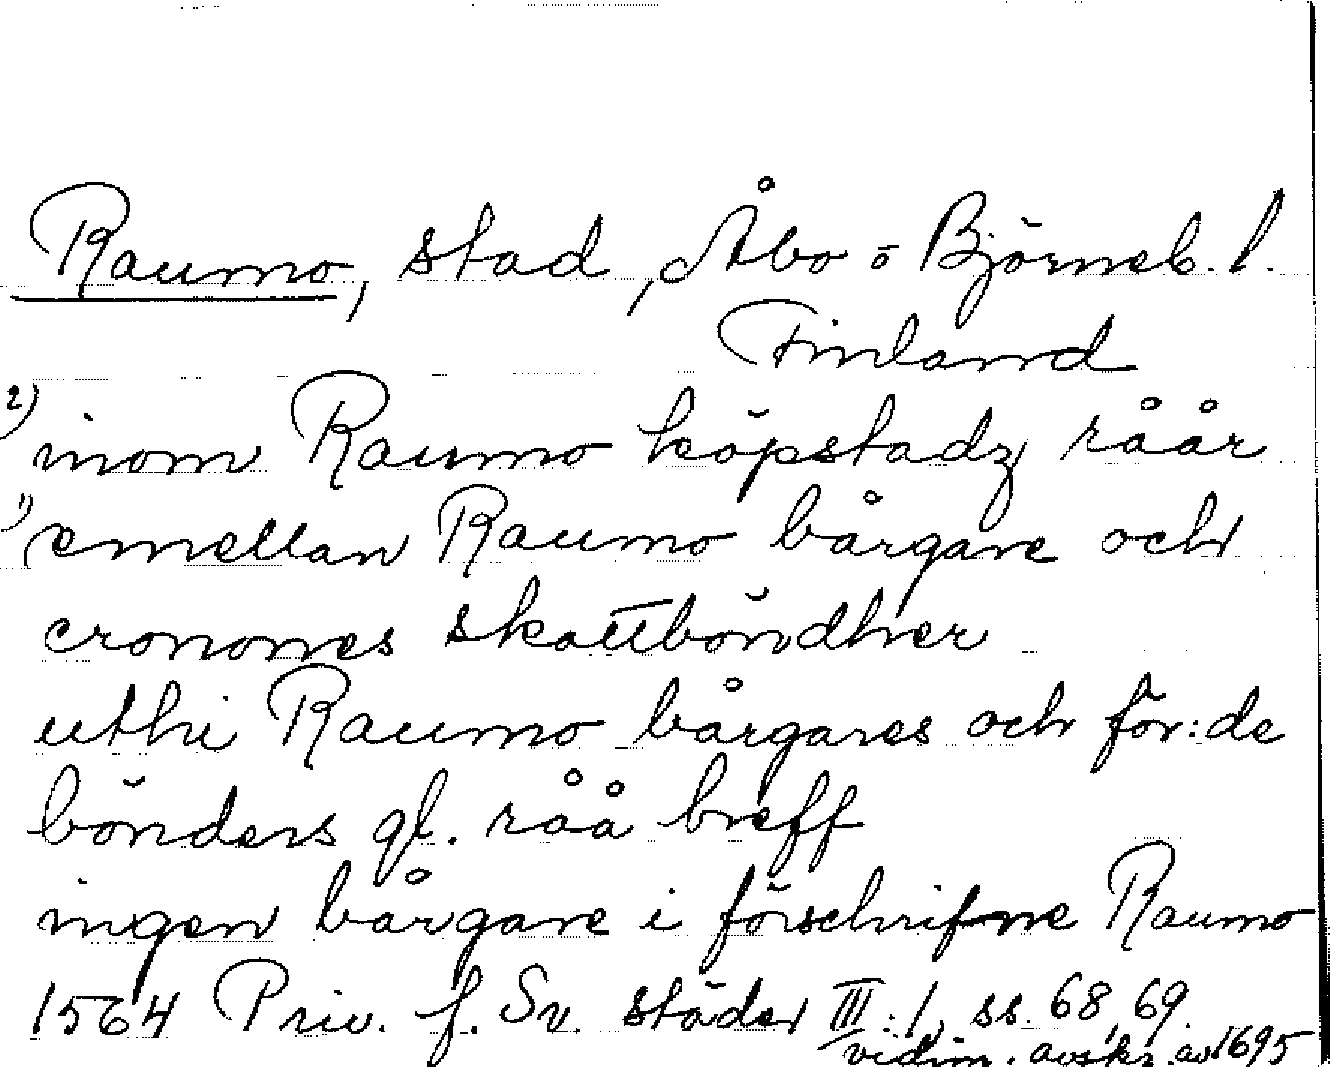 Raumo, stad, Åbo o Björneb. l.
Finland
2) inom Raumo köpstadz råår
1) emellan Raumo bårgare och
cronones skattböndher
uthi Raumo bårgares och för:de
bönders gl. råå breff
ingen bårgare i förschrifne Raumo
1564 Priv. f. Sv. städer III:1, ss. 68, 69.
vidim. avskr. av 1695